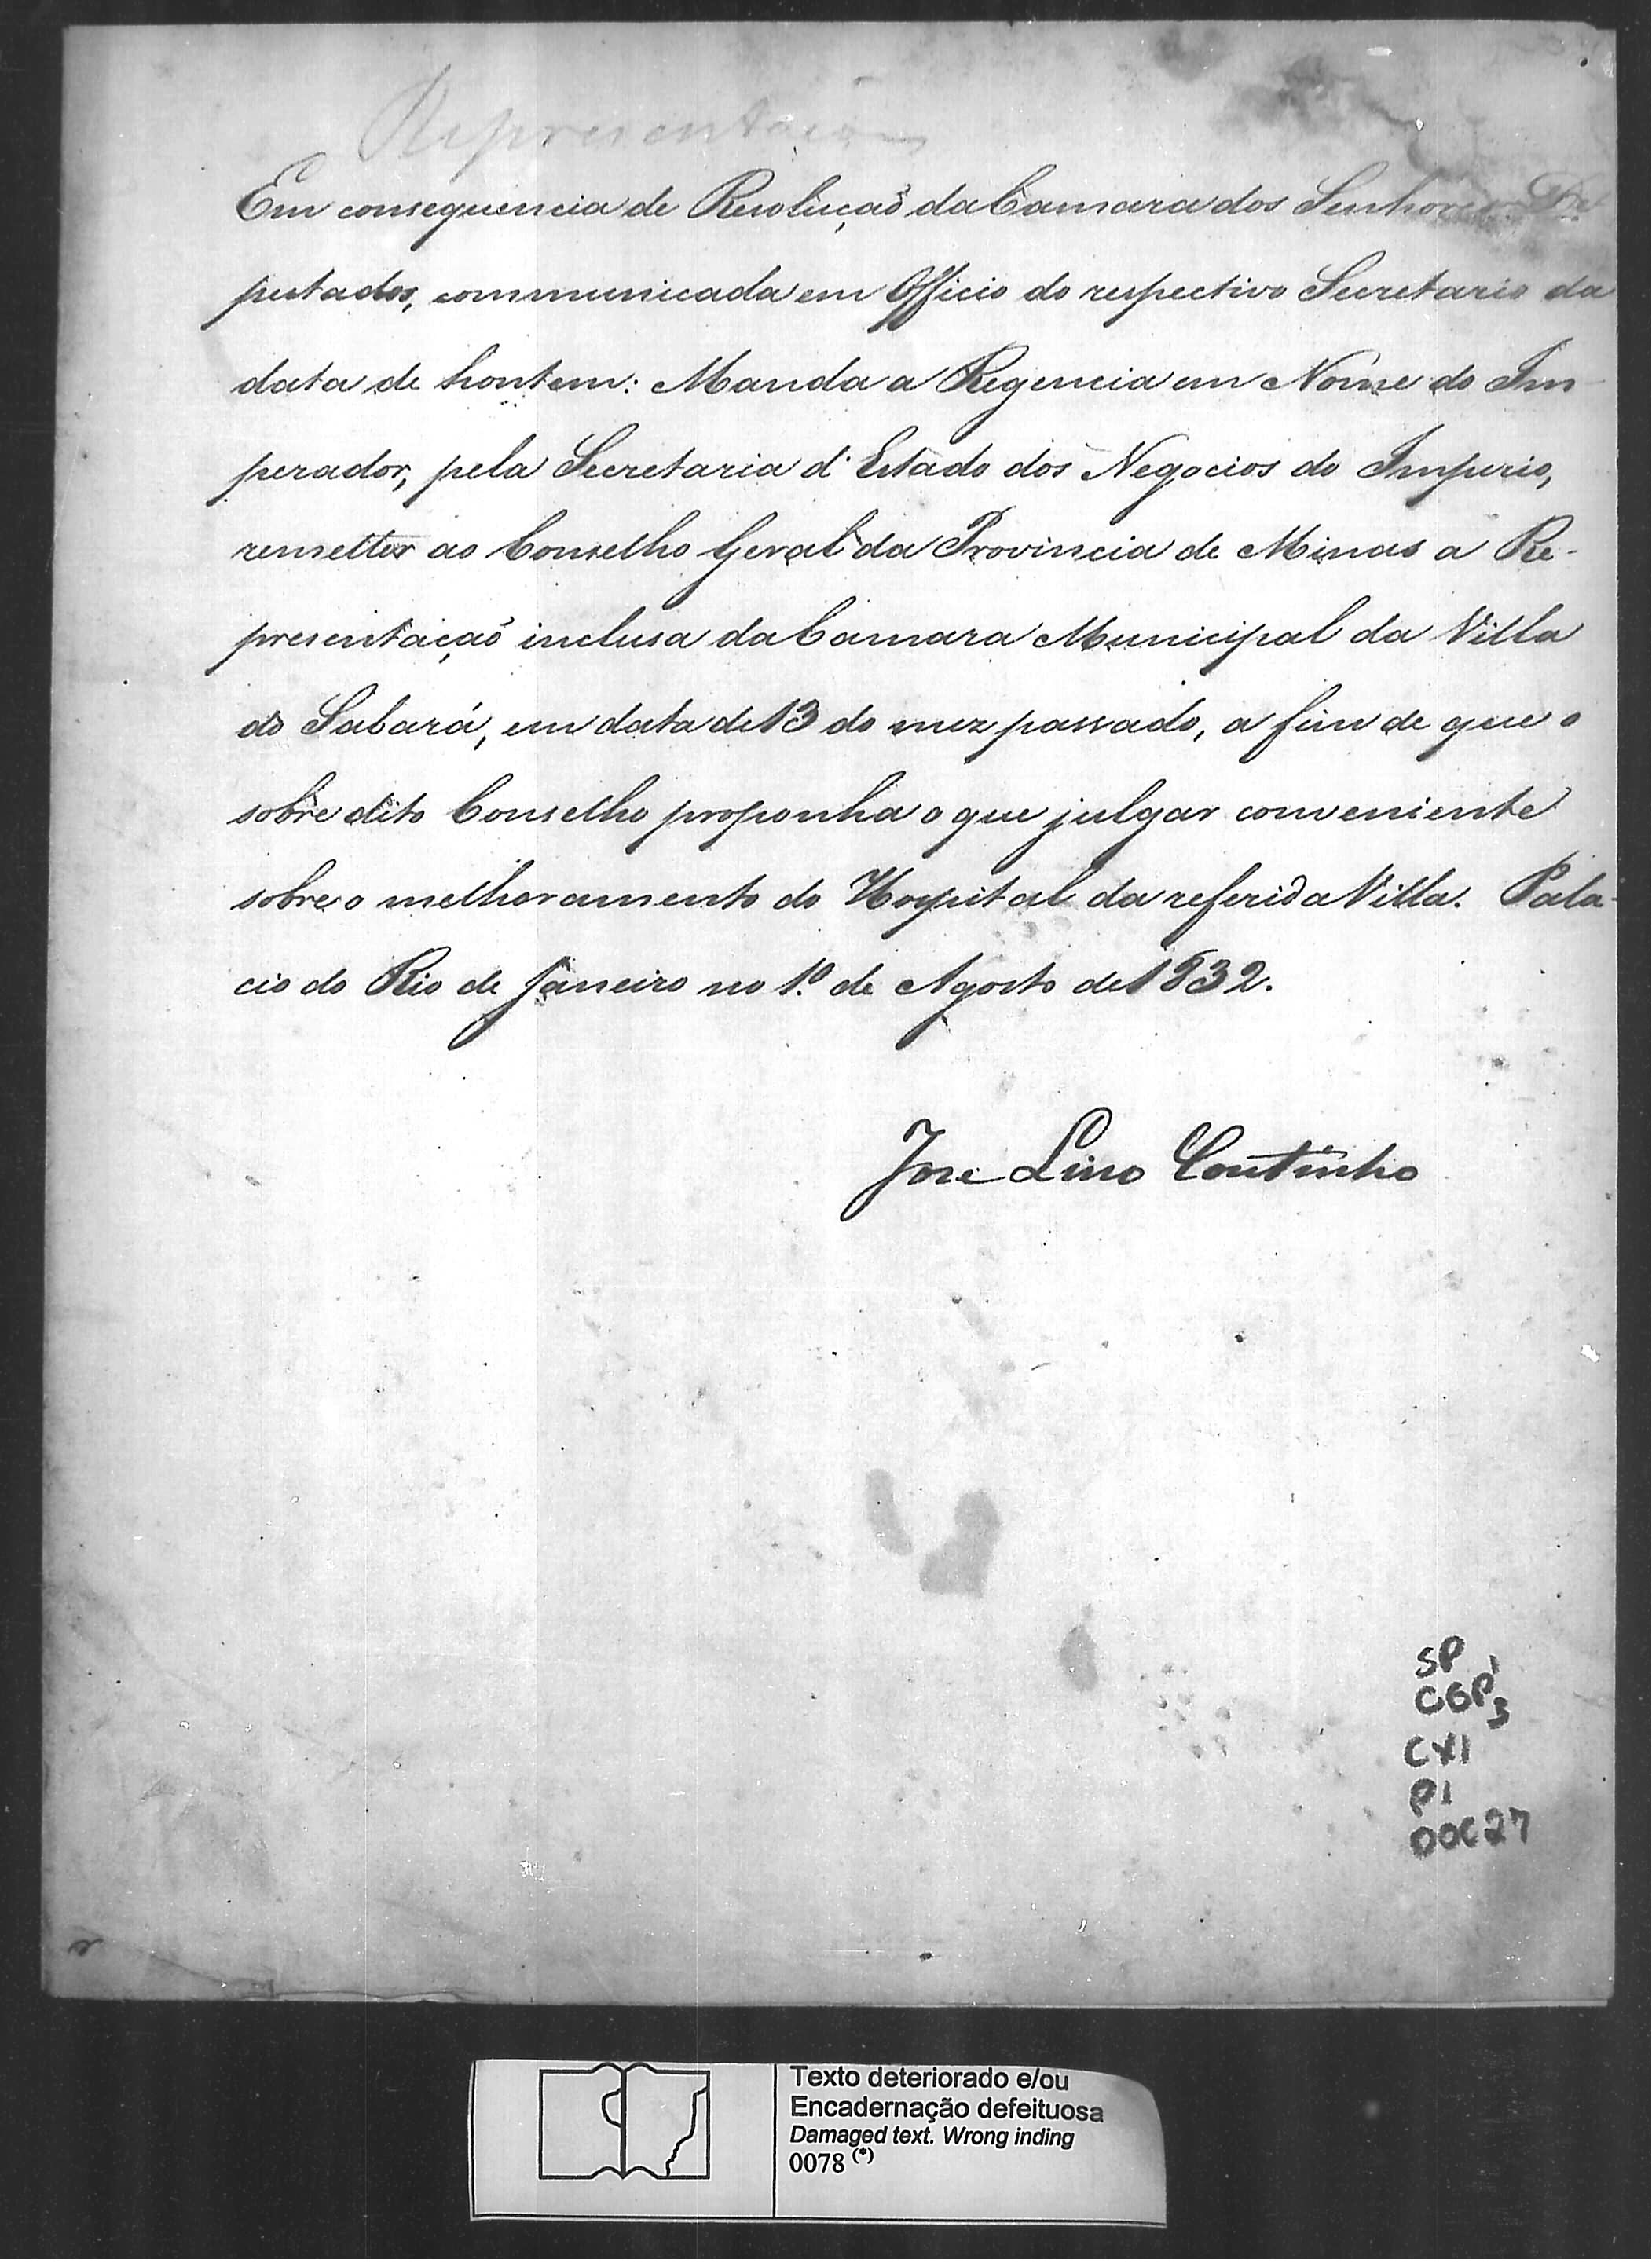 Representação
Em consequencia de Resolução da Camara dos Senhores De
putados, communicada em Officio do respectivo Secretario da
data de hontem: Manda a Regencia em Nome do Im-
perador, pela Secretaria d'Estado dos Negocios do Imperio,
remetter ao Conselho Geral da Provincia de Minas a Re-
presentação inclusa da Camara Municipal da Villa
do Sabará, em data de 13 do mez passado, a fim de que o
sobredito Conselho proponha o que julgar conveniente
sobre o melhoramento do Hospital da referida Villa. Pala-
cio do Rio de Janeiro no 1º de Agosto de 1832.
Jose Lino Coutinho
SP
CGP 1,3
CX1
P1
DOC 27
Texto deteriorado e/ou
Encadernação defeituosa
Damaged text. Wrong inding
0078 (*)